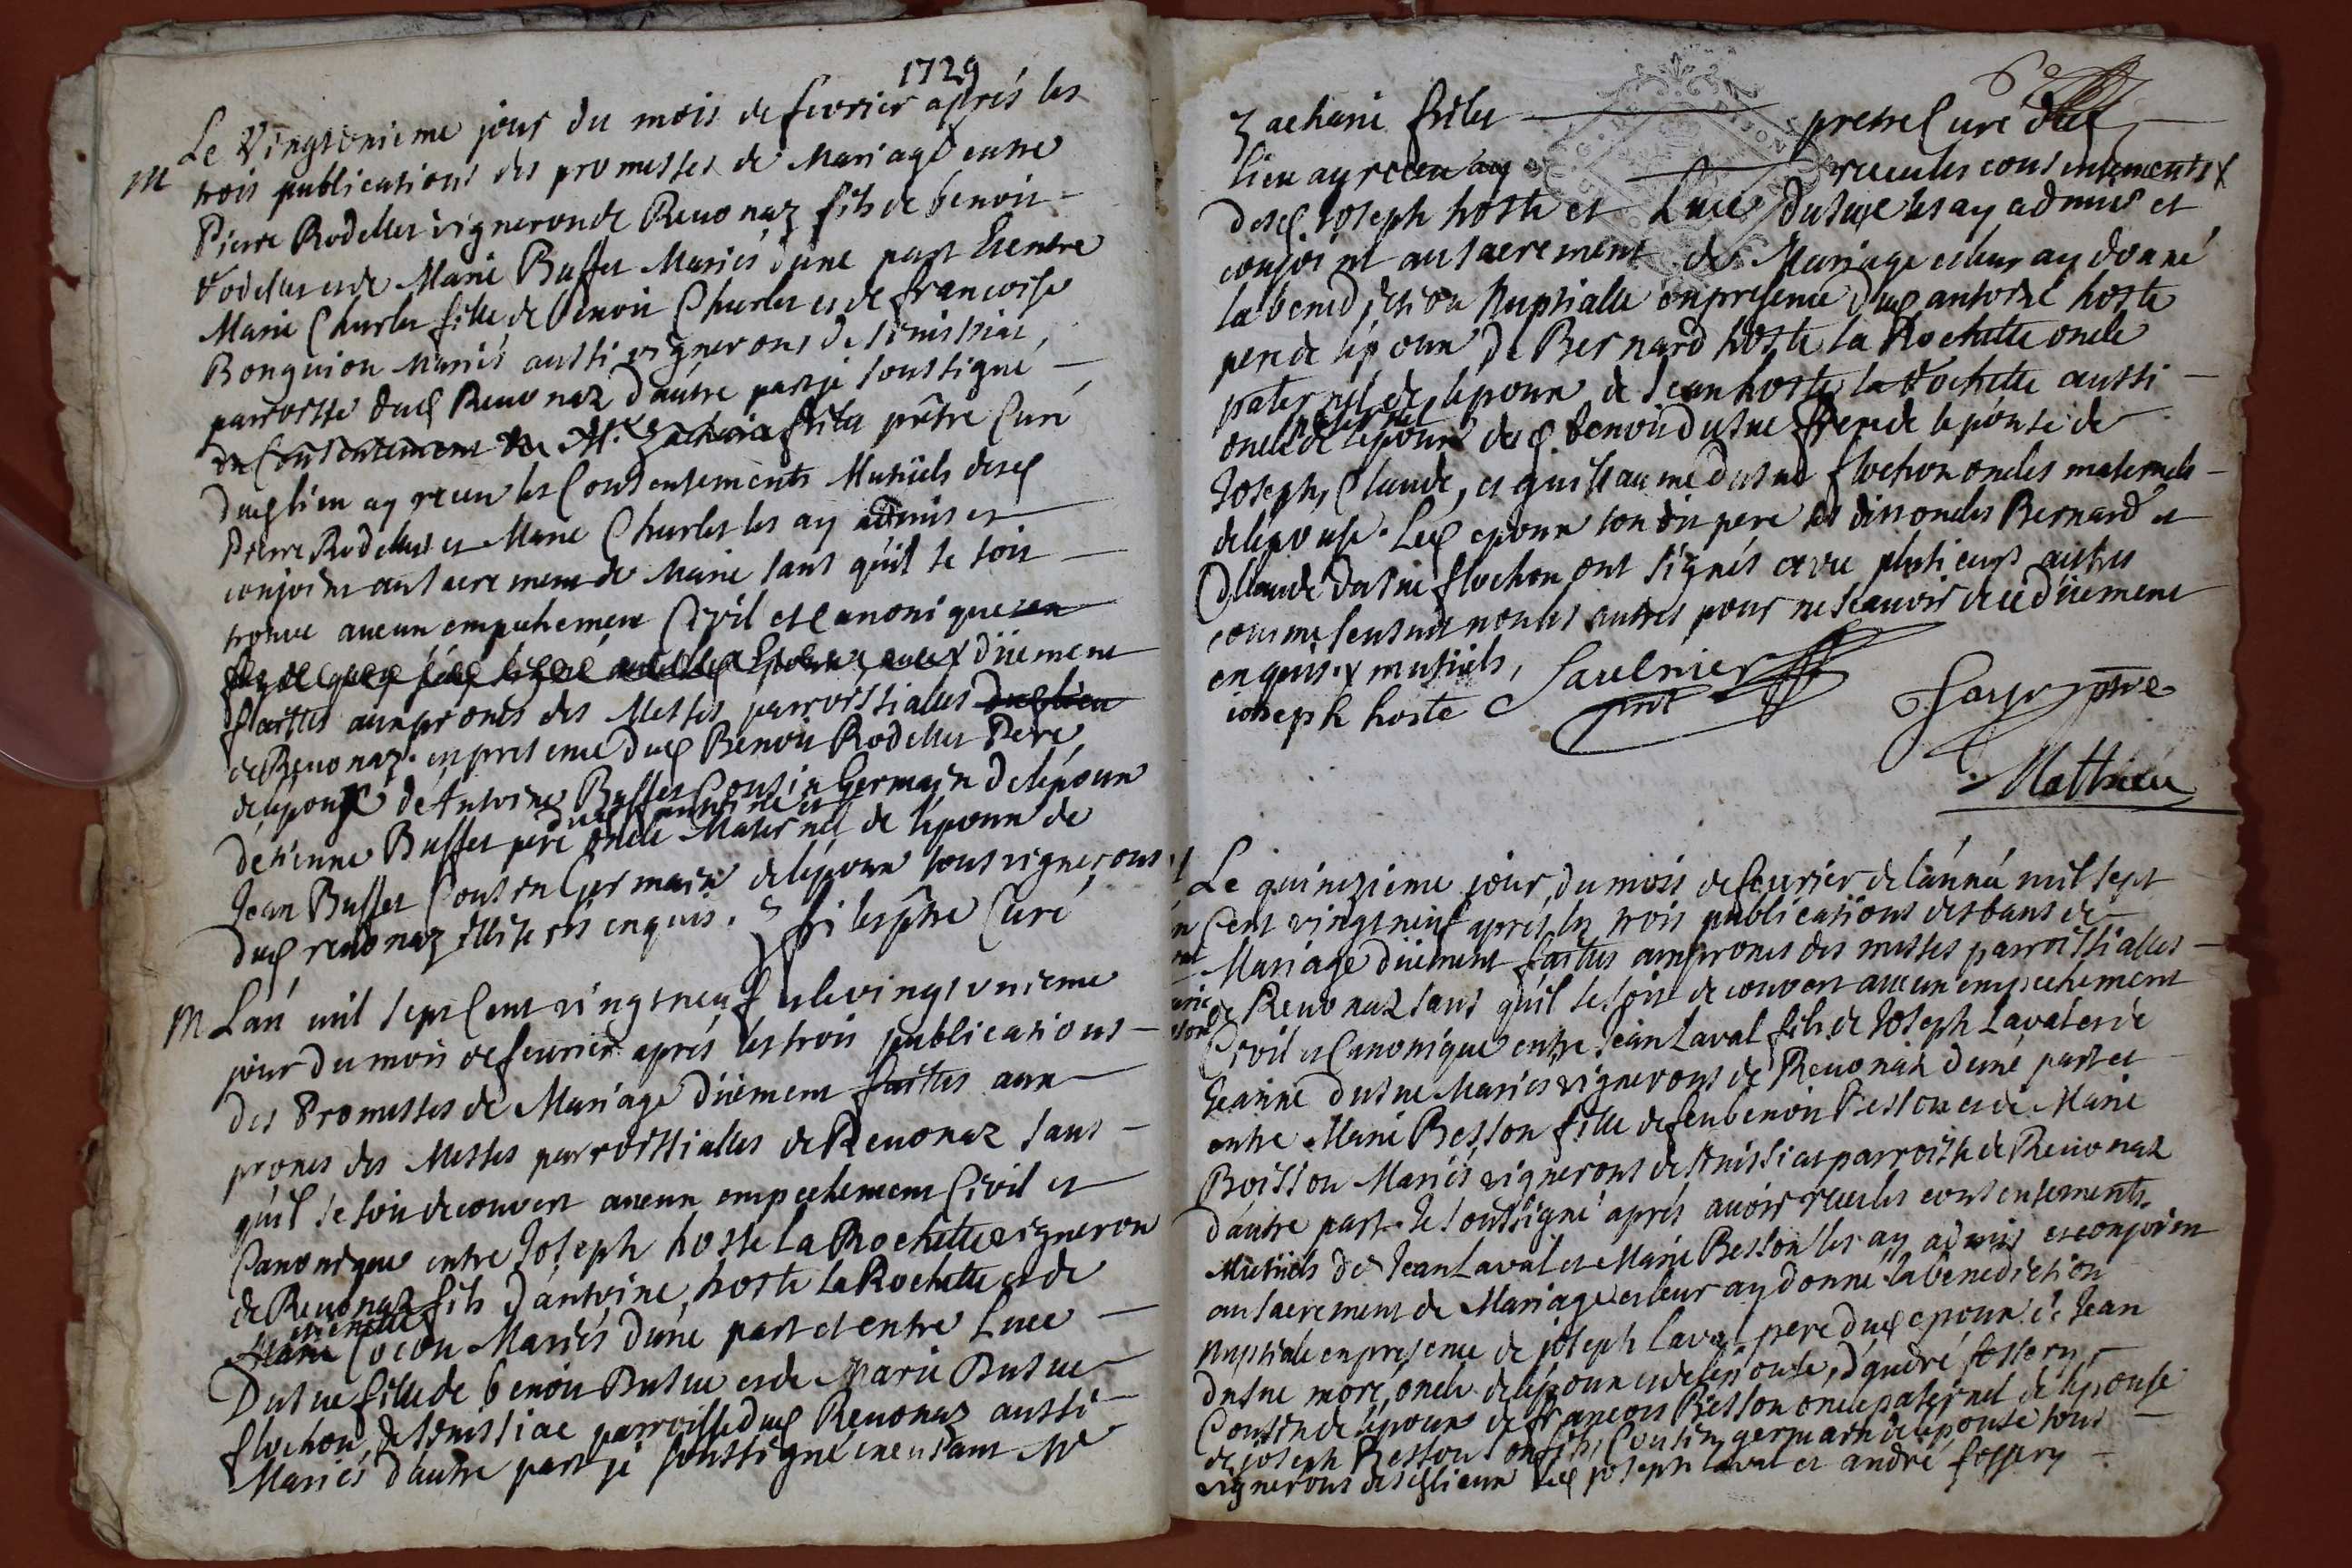 1729
M Le Vingtunieme jour du mois de fevrier aprés les
trois publications des promesses de Mariage entre
Pierre Rodelles vigneron de Reuonaz fils de benoit
Rodelles et de Marie Buffet Mariés d'une part Et entre
Marie Churlet fille de benoit Churlet et de francoise
Bonguion Mariés aussi vignerons de senissiat
parroisse dud Reuonaz d'autre part je soussigné
du Consentement de Mr Zacharie prêtre Curé
dud lieu ay receu les Consentements Mutüels desd
Pierre Rodelles et Marie Churlet les ay admis et
conjoint au sacrement de Marie sans qu'il se soit
trouvé aucun empechement Civil et Canonique
düement
faittes aux prones des Messes parroissialles dud lieu
de Reuonaz. en presence dud Benoit Rodelles Pere
de lépoux de Antoine Buffet Cousin Germain de lépoux
detienne Buffet pere dud antoine et oncle Maternel de lépoux de
Jean Buffet Cousin Germain de lépoux tous vignerons
dud reuonaz illiterés enquis. prtre Curé
M Lan mil sept Cent vingt neuf et le vingt unieme
jour du mois de feurier aprés les trois publications
des Promesses de Mariage düement faittes aux
prones des Messes parroissialles de Reuonaz sans
qu'il se soit decouvert aucun empechement Civil et
Canonique entre Joseph hoste La Rochette vigneron
de Reuonaz fils d'antoine hoste La Rochette et de
Marie etiennette Cocon Mariés d'une part et entre Luce
Dutue fille de benoit Dutue et de Marie Dutue
flochon de senissiac parroisse dud Reuonaz aussi
Mariés d'autre part je soussigné
Zacharie prestre Curé dud
lieu ay receu ay receu les consentements x
desd Joseph hoste et Luce Dutue les ay admis et
conjoint au sacrement de Mariage et leur ay donné
la benediction Nuptialle en presence dud antoine hoste
pere de lépoux de Bernard hoste la Rochette oncle
paternel de lepoux de Jean hoste la Rochette aussi
oncle paternel de lépoux dud benoit dutue frere de lépouse de
Joseph, Claude, et guillaume dutue flochon oncles maternels
de lépouse. Led epoux son dit pere les dits oncles Bernard et
Claude Dutue flochon ont signés avec plusieurs autres
comme sensuit non les autres pour ne scauoir de ce düement
enquis. x mutüels,
ioseph hoste Saulnier
prtre
Matthieu
Le quinzieme jour du mois de feurier de l'année mil sept
Cent vingt neuf aprés les trois publications des bans de
Mariage düement faittes aux prones des messes parroissialles
de Reuonaz sans qu'il se soit decouvert aucun empechement
Civil et Canonique entre Jean Laval fils de Joseph Laval et de
Jeanne Dutue Mariés vignerons de Reuonaz d'une part et
entre Marie Besson fille de feu benoit Besson et de Marie
Boisson Mariés vignerons de senissiat parroisse de Reuonaz
d'autre part. Je soussigné aprés auoir receu les consentements
Mutüels de Jean Laval et Marie Besson les ay admis et conjoint
au sacrement de Mariage et leur ay donné la benediction
Nuptiale en presence de joseph Laval pere dud epoux de Jean
dutue moré, oncle de lépoux et de lépouse, d'andré fossery,
Cousin de lépoux de francois Besson oncle paternel de lépouse
de joseph Besson son fils, Cousin germain de lépouse tous
vignerons desd lieux Led joseph laval et andré fossery